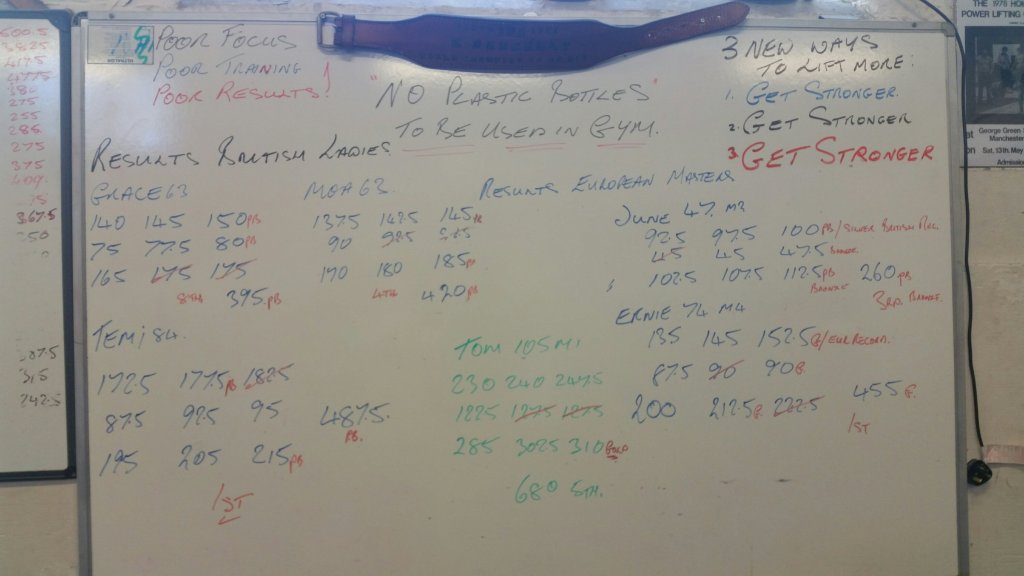 POOR FOCUS
POOR TRAINING
POOR RESULTS!
"NO PLASTIC BOTTLES"
TO BE USED IN GYM.
3 NEW WAYS
TO LIFT MORE:
1. GET STRONGER.
2. GET STRONGER
3. GET STRONGER
RESULTS BRITISH LADIES
GRACE 63
140 145 150 PB
75 77.5 80 PB
165 175 175
8TH 395 PB
MOA 63.
137.5 142.5 145 PB
90 92.5
170 180 185 PB
4TH 420 PB
TEMI 84.
172.5 177.5 PB 182.5
87.5 92.5 95
487.5.
PB.
195 205 215 PB
1ST
RESULTS EUROPEAN MASTERS
JUNE 47. M3
92.5 97.5 100 PB/SILVER BRITISH REC.
45 45 47.5 BRONZE.
102.5 107.5 112.5 PB 260 PB
BRONZE
3RD. BRONZE.
ERNIE 74 M4
135 145 152.5 G/EUR RECORD.
87.5 90 90 G
200 212.5 G. 222.5
455 G.
1ST
TOM 105 M1
230 240 247.5
122.5 127.5 127.5
285 302.5 310 GOLD
680 5TH.
500.5
382.5
417.5
477.5
180
275
255
285
275
375
409.
75
367.5
350
315
242.5
THE 1978 HOM
POWER LIFTING
George Green
Manchester
Sat. 13th. May
Admission